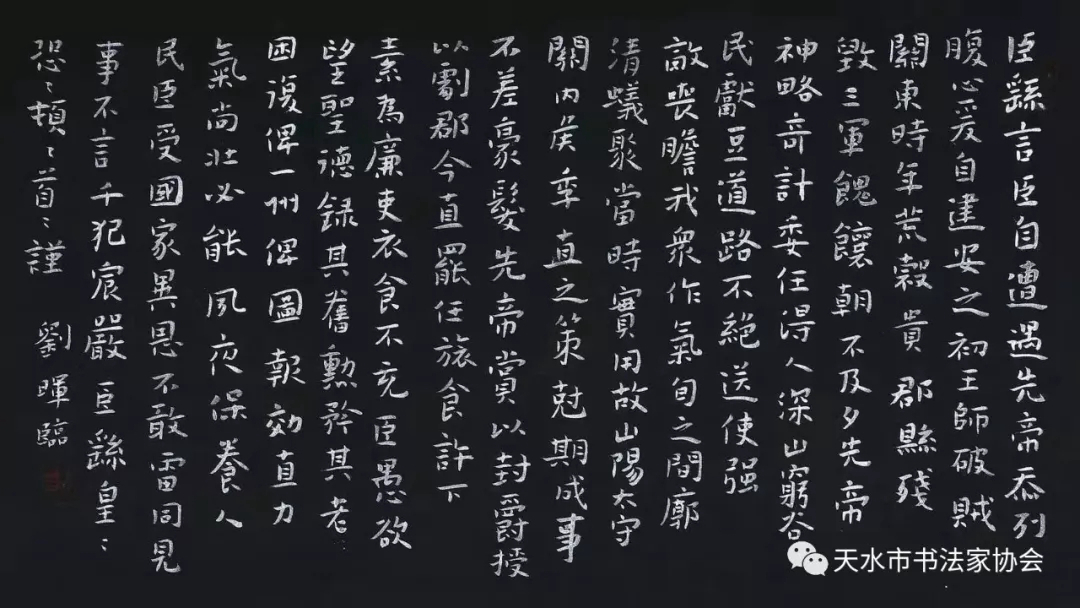 臣繇言臣自遭遇先帝忝列
腹心爰自建安之初王師破賊
關東時年荒穀貴郡縣殘
毀三軍餽饟朝不及夕先帝
神略奇計委任得人深山窮谷
民獻豆道路不絕送使强
敵喪瞻我衆作氣旬之間廓
清蟻聚當時實用故山陽太守
關內侯季直之策尅期成事
不差豪髮先帝賞以封爵授
以劇郡今直罷任旅食許下
素為廉吏衣食不充臣愚欲
望聖德録其舊勳矜其老〻
困復俾一州俾圖報効直力
氣尚壯必能夙夜保養人
民臣受國家異恩不敢雷同見
事不言干犯宸嚴臣繇皇〻
恐〻頓〻首〻謹
劉暉臨
天水市书法家协会